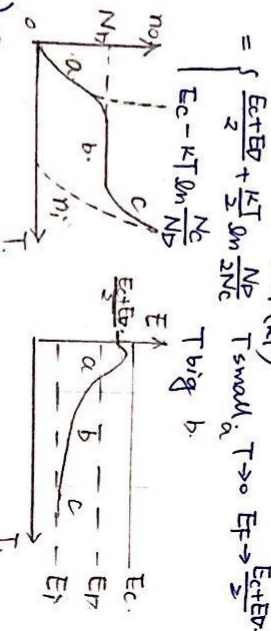 = { (Ec+ED)/2 + KT/2 ln ND/2Nc T small. a T→0 EF → (Ec+ED)/2
Ec - KT ln Nc/ND T big b.
n0
ND
a
b.
c
ni
0
T
E
(Ec+ED)/2
a
b
c
Ec.
ED
Ei
T